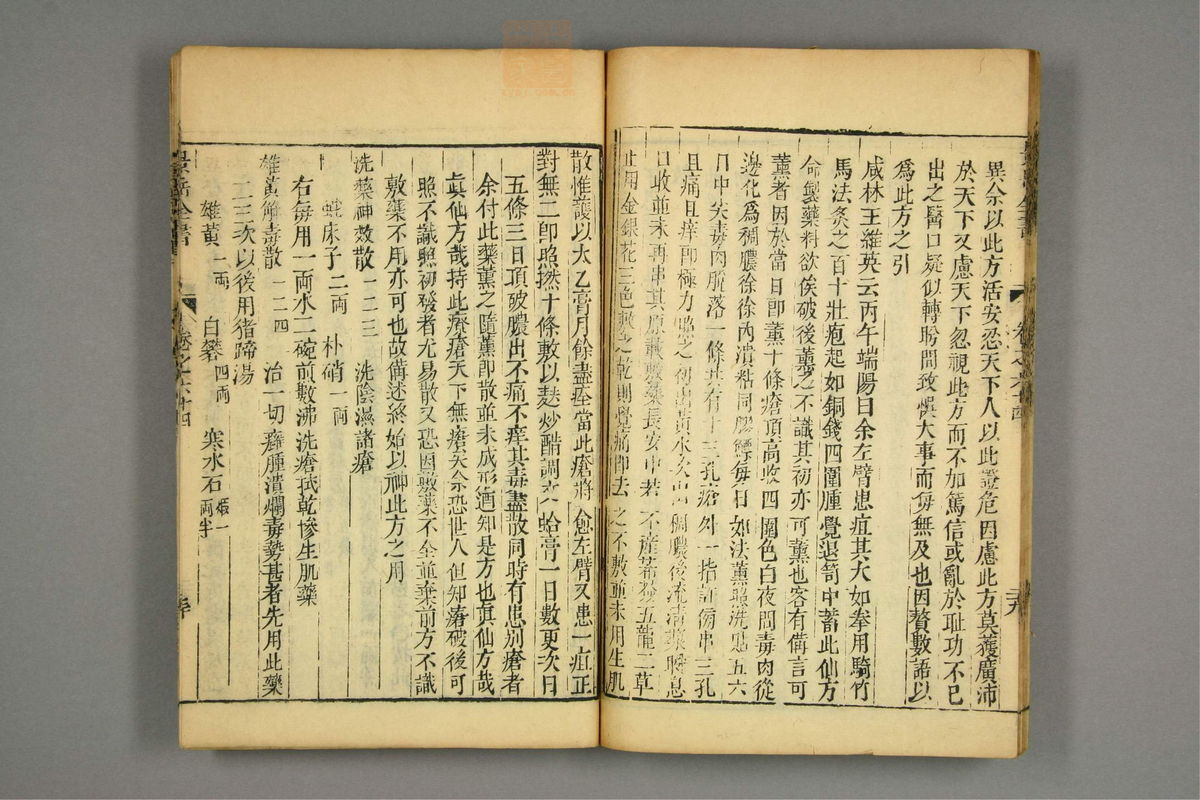 異余以此方活安忍天下人以此證危因慮此方莫獲廣沛
於天下又慮天下忽視此方而不加篤信或亂於耻功不已
出之醫口疑似轉盼間致悞大事而毎無及也因贅數語以
爲此方之引
咸林王維英云丙午端陽日余左臂患疽其大如拳用騎竹
馬法灸之百十壯疱起如銅錢四圍腫覺退笥中蓄此仙方
命製藥料欲俟破後薰之不識其初亦可薰也客有備言可
薰者因於當日卽薰十條瘡頂高收四圍色白夜間毒肉從
邊化爲稠膿徐徐內潰粘同膠
毎日如法薰照洗點五六
日中失毒肉脫落一條共有十三孔瘡外一指許傍串三孔
且痛且痒卽極力
之初出黃水次出稠膿後流清
口收並未再串其原
敷藥長安中若不産
五龍二草
止用金銀花三色敷之乾則覺痛卽去之不敷並未用生肌
散惟護以太乙膏月餘盡痊當此瘡將愈左臂又患一疽正
對無二卽照撚十條敷以麸炒醋調文蛤膏一日數更次日
五條三日頂破膿出不痛不痒其毒盡散同時有患別瘡者
余付此藥薰之隨薰卽散並未成形迺知是方也眞仙方哉
眞仙方哉持此療瘡天下無瘡矣余恐世人但知瘡破後可
照不識照初發者尤易散又恐因敷藥不全並棄前方不識
敷藥不用亦可也故備述終始以神此方之用
洗藥神效散 一二三 洗陰濕諸瘡
蛇床子二兩 朴硝一兩
右毎用一両水二碗煎數沸洗瘡拭乾慘生肌藥
雄黃解毒散 一二四 治一切癰腫潰爛毒勢甚者先用此藥
二三次以後用猪蹄湯
雄黃一両 白礬四両 寒水石煅一両半
景岳全書
卷之六十四